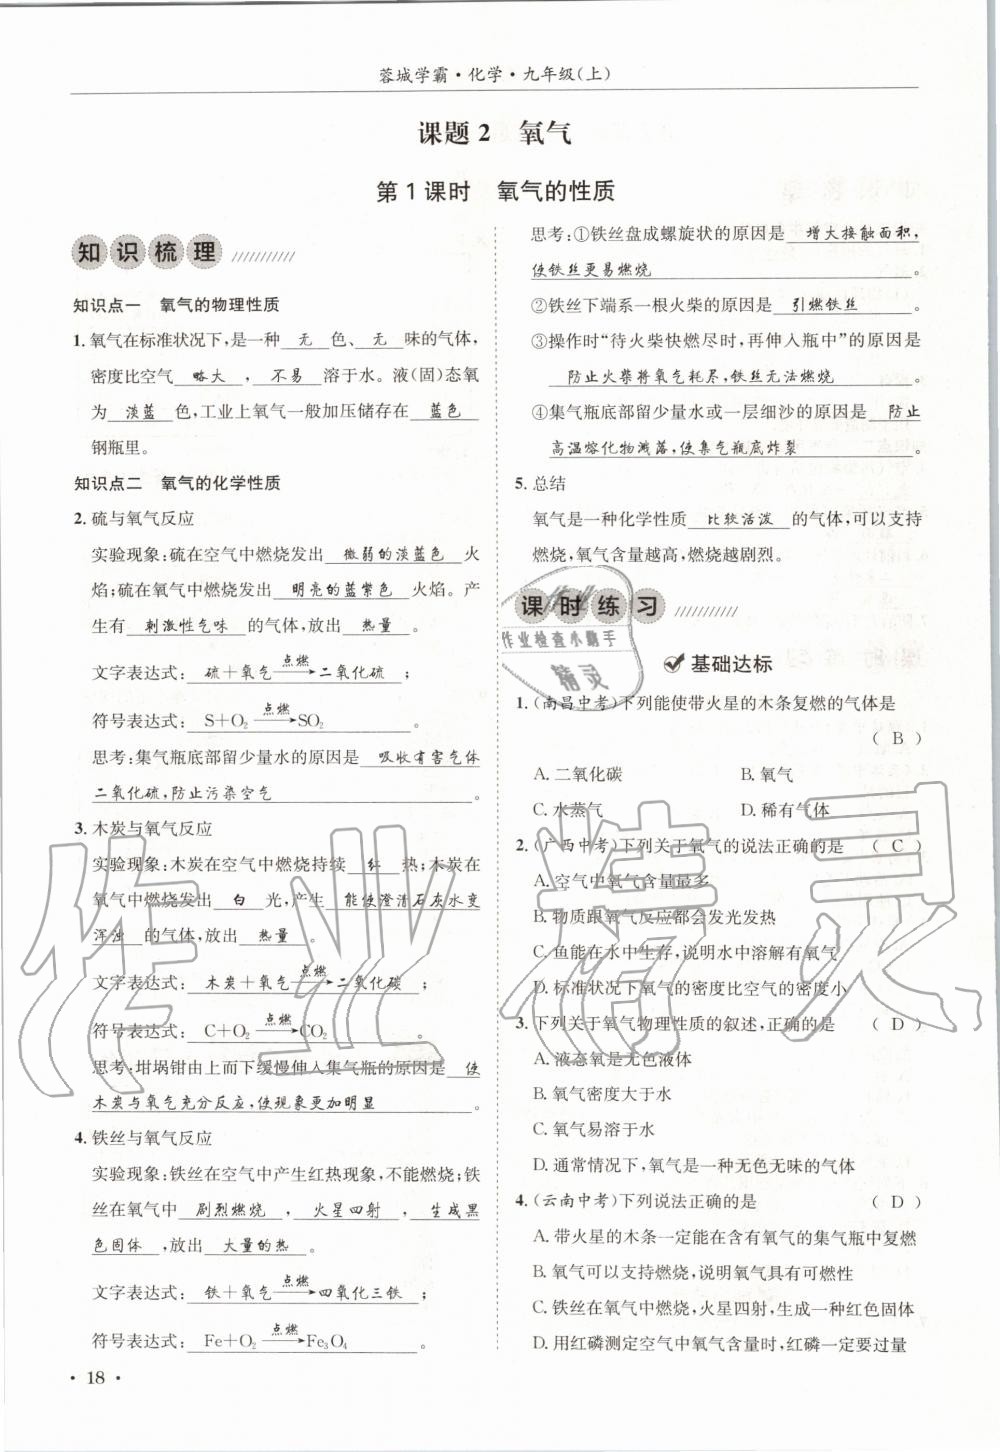 蓉城学霸·化学·九年级(上)
课题2 氧气
第1课时 氧气的性质
知识梳理
知识点一 氧气的物理性质
1. 氧气在标准状况下,是一种 无 色、 无 味的气体,
密度比空气 略大 , 不易 溶于水。液(固)态氧
为 淡蓝 色,工业上氧气一般加压储存在 蓝色
钢瓶里。
知识点二 氧气的化学性质
2. 硫与氧气反应
实验现象:硫在空气中燃烧发出 微弱的淡蓝色 火
焰;硫在氧气中燃烧发出 明亮的蓝紫色 火焰。产
生有 刺激性气味 的气体,放出 热量 。
文字表达式: 硫+氧气 点燃→ 二氧化硫 ;
符号表达式: S+O₂ 点燃→ SO₂ 。
思考:集气瓶底部留少量水的原因是 吸收有害气体
二氧化硫,防止污染空气 。
3. 木炭与氧气反应
实验现象:木炭在空气中燃烧持续 红 热;木炭在
氧气中燃烧发出 白 光,产生 能使澄清石灰水变
浑浊 的气体,放出 热量 。
文字表达式: 木炭+氧气 点燃→ 二氧化碳 ;
符号表达式: C+O₂ 点燃→ CO₂ 。
思考:坩埚钳由上而下缓慢伸入集气瓶的原因是 使
木炭与氧气充分反应,使现象更加明显 。
4. 铁丝与氧气反应
实验现象:铁丝在空气中产生红热现象,不能燃烧;铁
丝在氧气中 剧烈燃烧 , 火星四射 , 生成黑
色固体 ,放出 大量的热 。
文字表达式: 铁+氧气 点燃→ 四氧化三铁 ;
符号表达式: Fe+O₂ 点燃→ Fe₃O₄ 。
思考:①铁丝盘成螺旋状的原因是 增大接触面积,
使铁丝更易燃烧 。
②铁丝下端系一根火柴的原因是 引燃铁丝 。
③操作时“待火柴快燃尽时,再伸入瓶中”的原因是
防止火柴将氧气耗尽,铁丝无法燃烧 。
④集气瓶底部留少量水或一层细沙的原因是 防止
高温熔化物溅落,使集气瓶底炸裂 。
5. 总结
氧气是一种化学性质 比较活泼 的气体,可以支持
燃烧,氧气含量越高,燃烧越剧烈。
课时练习
基础达标
1. (南昌中考)下列能使带火星的木条复燃的气体是
( B )
A. 二氧化碳 B. 氧气
C. 水蒸气 D. 稀有气体
2. (广西中考)下列关于氧气的说法正确的是 ( C )
A. 空气中氧气含量最多
B. 物质跟氧气反应都会发光发热
C. 鱼能在水中生存,说明水中溶解有氧气
D. 标准状况下氧气的密度比空气的密度小
3. 下列关于氧气物理性质的叙述,正确的是 ( D )
A. 液态氧是无色液体
B. 氧气密度大于水
C. 氧气易溶于水
D. 通常情况下,氧气是一种无色无味的气体
4. (云南中考)下列说法正确的是 ( D )
A. 带火星的木条一定能在含有氧气的集气瓶中复燃
B. 氧气可以支持燃烧,说明氧气具有可燃性
C. 铁丝在氧气中燃烧,火星四射,生成一种红色固体
D. 用红磷测定空气中氧气含量时,红磷一定要过量
· 18 ·
作业检查小助手
精灵
作业精灵